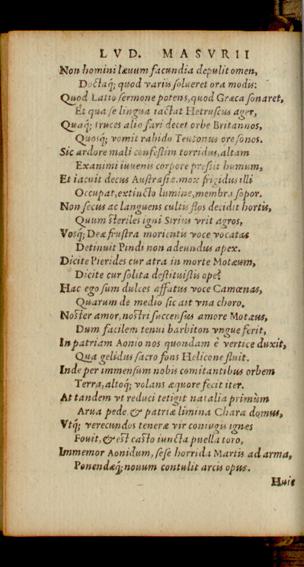 LVD. MASVRII
Non homini læuum facundia depulit omen,
Doctaq; quod varijs solueret ora modis:
Quod Latio sermone potens, quod Græca sonaret,
Et qua se lingua iactat Hetruscus ager,
Quaq; truces alio fari decet orbe Britannos,
Quosq; vomit rabido Teutonus ore sonos.
Sic ardore mali confestim torridus, altam
Exanimi iuuenis corpore pressit humum,
Et iacuit decus Austrasiæ. mox frigidus illi
Occupat, extincto lumine, membra sopor.
Non secus ac languens cultis flos decidit hortis,
Quum steriles igni Sirius vrit agros,
Vosq; Deæ frustra morientis voce vocatas
Detinuit Pindi non adeundus apex.
Dicite Pierides cur atra in morte Motæum,
Dicite cur solita destituistis ope?
Hac ego sum dulces affatus voce Camœnas,
Quarum de medio sic ait vna choro,
Noster amor, nostri succensus amore Motæus,
Dum facilem tenui barbiton vngue ferit,
In patriam Aonio nos quondam è vertice duxit,
Qua gelidus sacro fons Helicone fluit.
Inde per immensum nobis comitantibus orbem
Terra, altoq; volans æquore fecit iter.
At tandem vt reduci tetigit natalia primùm
Arua pede & patriæ limina Chara domus,
Vtq; verecundos teneræ vir coniugis ignes
Fouit, & est casto iuncta puella toro,
Immemor Aonidum, sese horrida Martis ad arma,
Ponendæq; nouum contulit arcis opus.
Huic